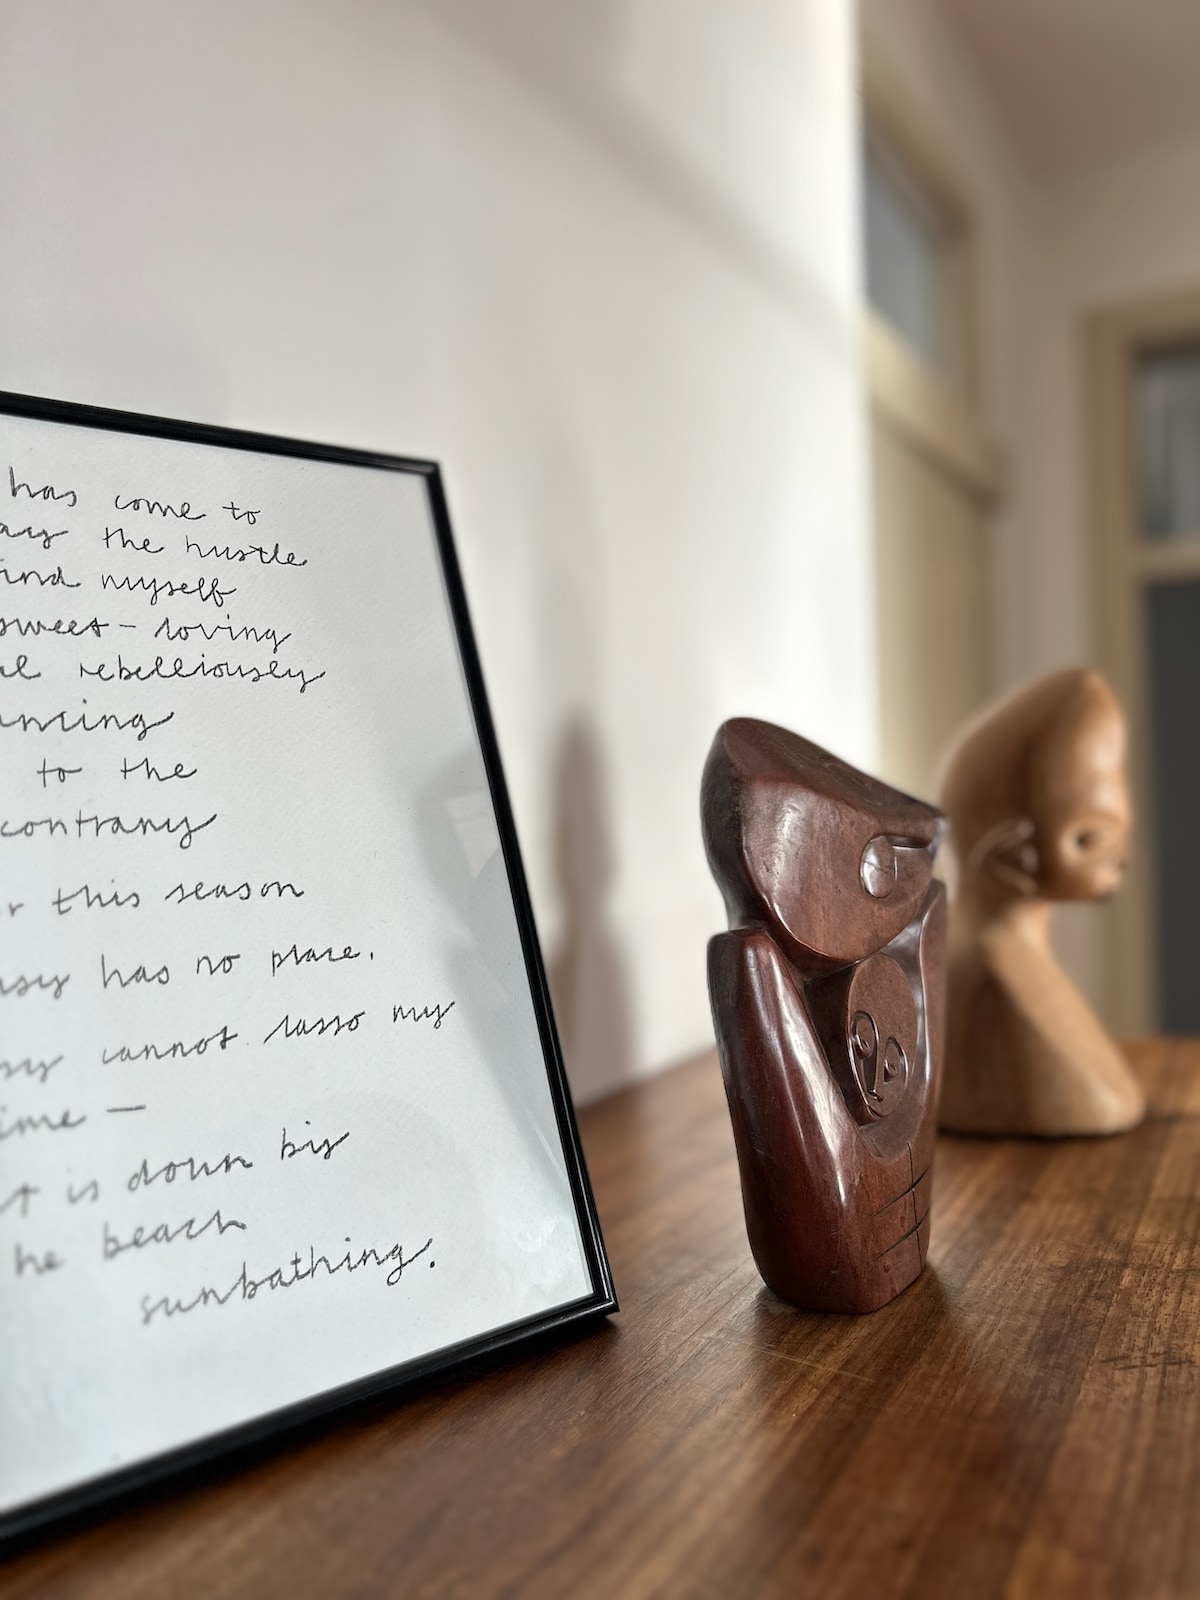 has come to
the hustle
find myself
sweet - loving
rebelliously
to the
contrary
this season
has no place.
cannot lasso my
is down by
beach
sunbathing.